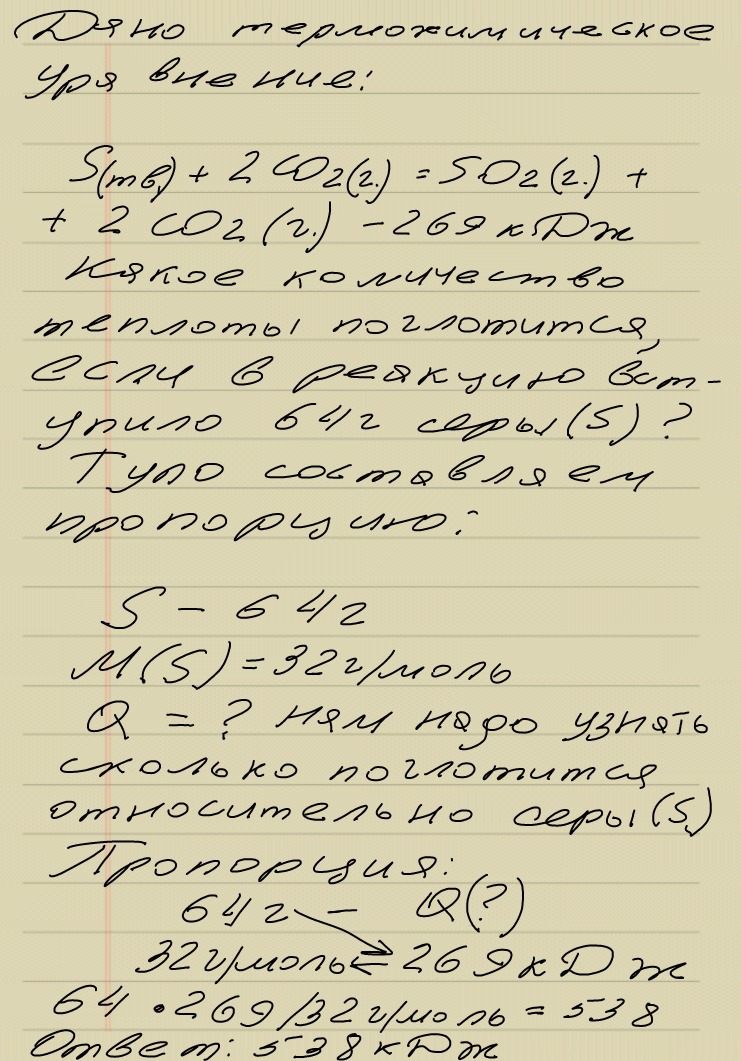 Дано термохимическое
уравнение:
S(тв.) + 2 CO2(г.) = SO2(г.) +
+ 2 CO2(г.) - 269 кДж
Какое количество
теплоты поглотится,
если в реакцию вст-
упило 64г серы(S)?
Тупо составляем
пропорцию:
S - 64г
M(S) = 32г/моль
Q = ? нам надо узнать
сколько поглотится
относительно серы(S)
Пропорция:
64г - Q(?)
32г/моль = 269 кДж
64 • 269/32г/моль = 538
Ответ: 538 кДж